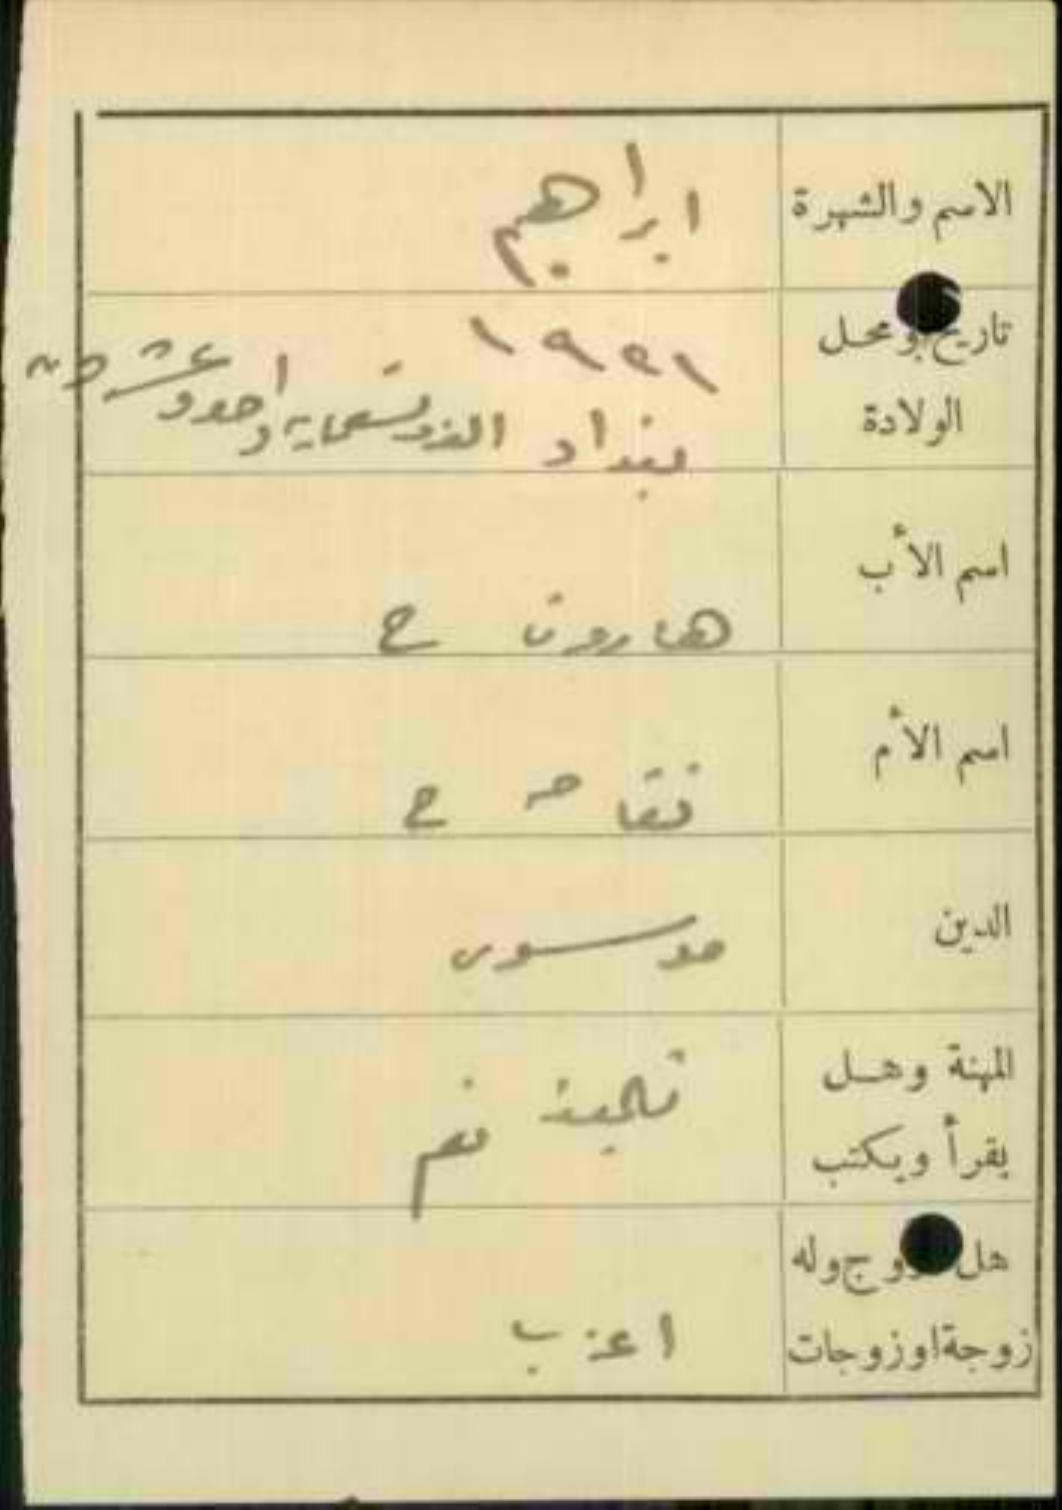 الاسم والشهرة
ابراهيم
تاريخ ومحل
الولادة
١٩٢١
بغداد الف وتسعماية واحد وعشرون
اسم الأب
هارون ح
اسم الأم
تفاحه ح
الدين
موسوى
المهنة وهل
يقرأ ويكتب
تلميذ نعم
هل وج وله
زوجة او زوجات
اعزب